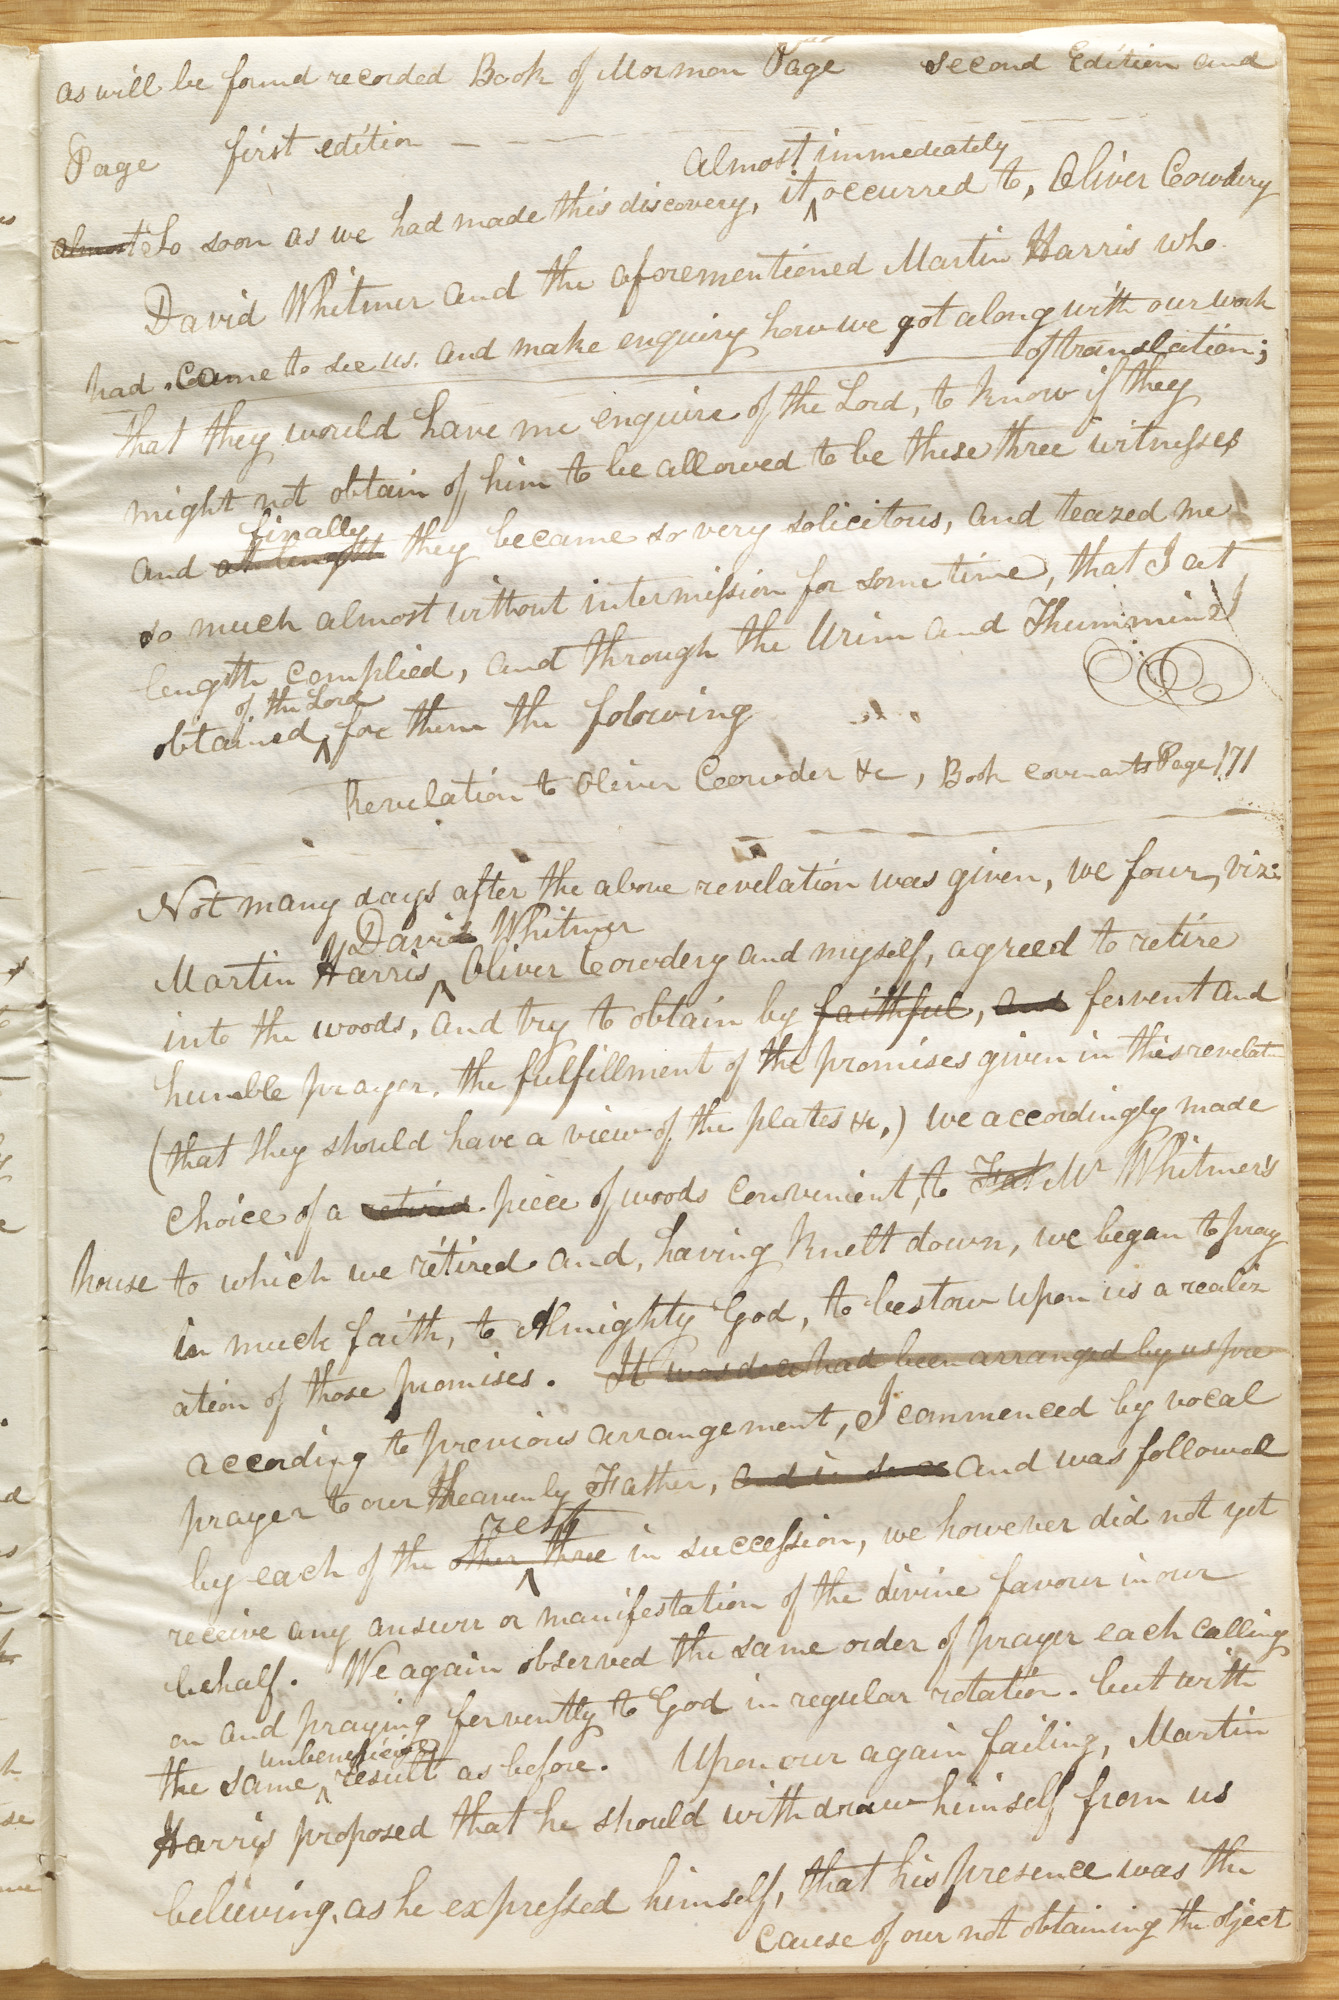 as will be found recorded Book of Mormon Page second Edition and
Page first edition — — —
almost immediately
almost So soon as we had made this discovery, it ^ occurred to, Oliver Cowdery
David Whitmer and the aforementioned Martin Harris who
had came to see us. and make enquiry how we got along with our work
of translation;
that they would have me enquire of the Lord, to know if they
might not obtain of him to be allowed to be these three witnesses
finally
and at length they became so very solicitous, and teazed me
so much almost without intermission for some time, that I at
length complied, and through the Urim and Thummim I
of the Lord
obtained ^ for them the folowing
Revelation to Oliver Coowder &c, Book covenants Page 171
Not many days after the above revelation was given, we four, viz:
David Whitmer
Martin Harris, ^ Oliver Cowdery and myself, agreed to retire
into the woods, and try to obtain by faithful, and fervent and
humble prayer. the fulfillment of the promises given in this revelatn
(that they should have a view of the plates &c,) we accordingly made
choice of a retired piece of woods convenient, to Fat Mr Whitmer's
house to which we retired and, having knelt down, we began to pray
in much faith, to Almighty God, to bestow upon us a realiz
ation of those promises. It was had been arranged by us pre
according to previous arrangement, I commenced by vocal
prayer to our heavenly Father, and in and was followed
rest
by each of the other ^ three in succession, we however did not yet
receive any answer or manifestation of the divine favour in our
behalf. We again observed the same order of prayer each calling
on and praying fervently to God in regular rotation. but with
unbeneficial
the same ^ result as before. Upon our again failing, Martin
Harris proposed that he should withdraw himself from us
believing, as he expressed himself, that his presence was the
cause of our not obtaining the object